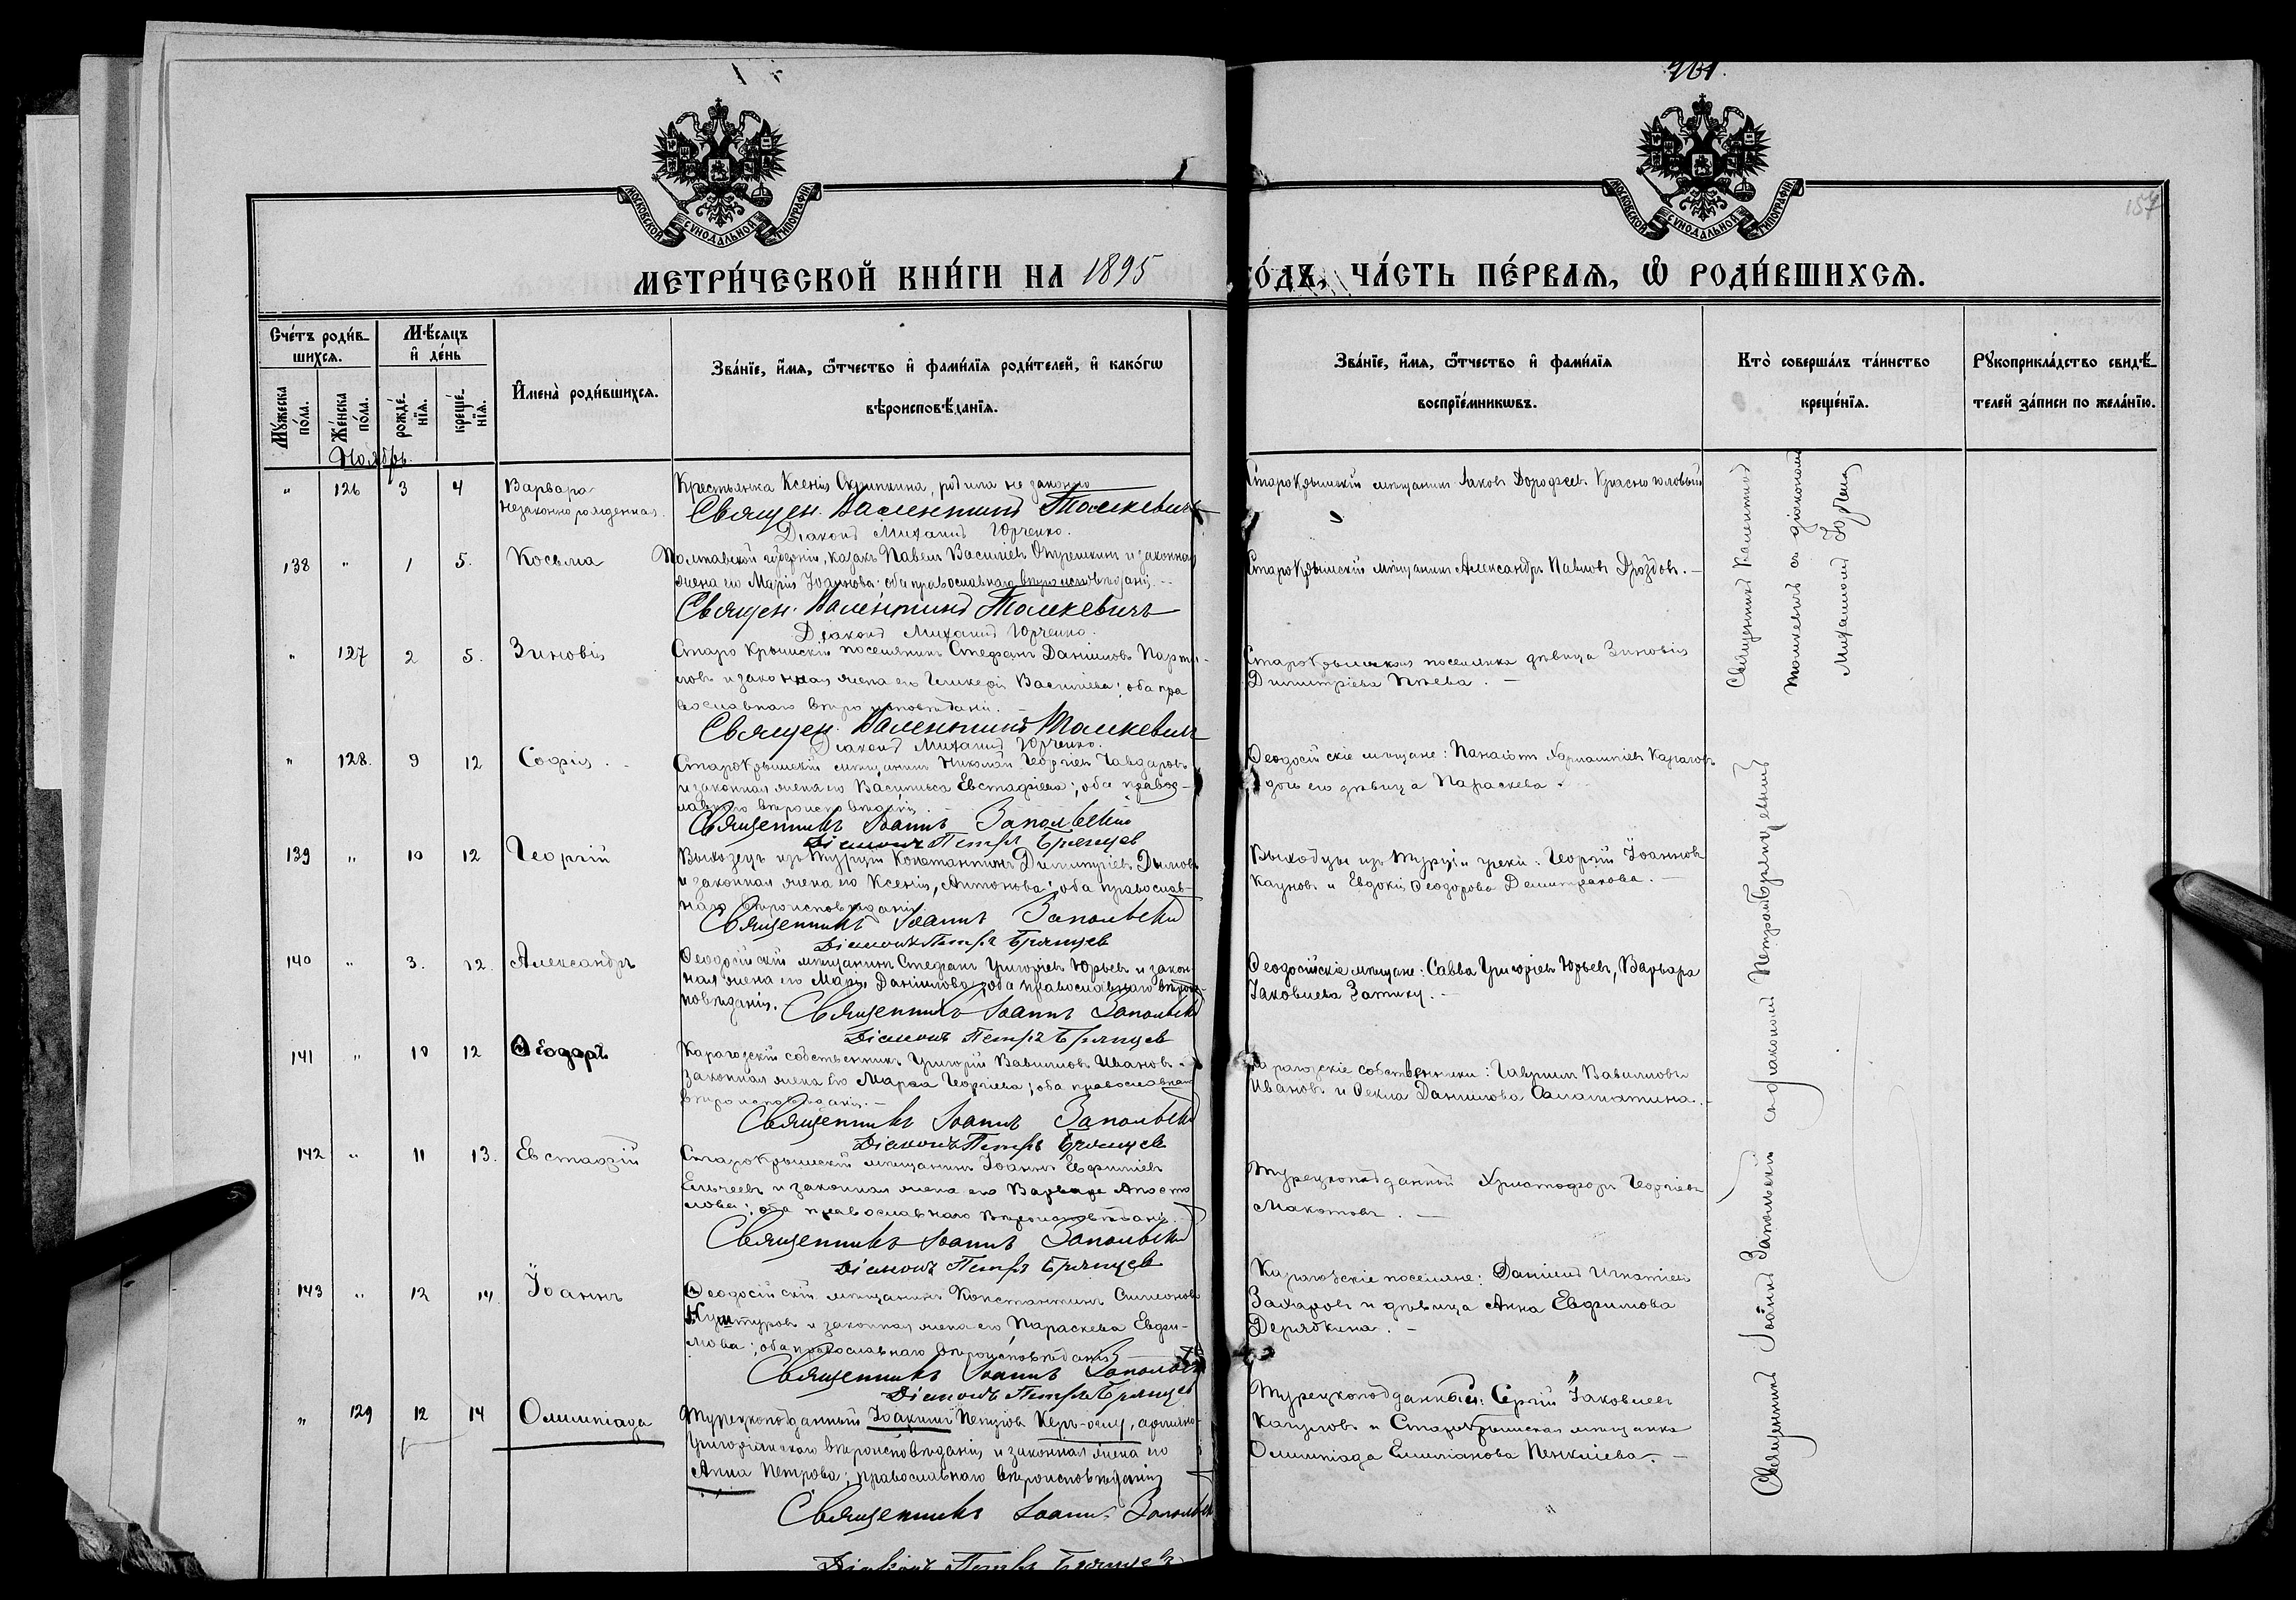 201.
МОСКОВСКОЙ СѴНОДАЛЬНОЙ ТИПОГРАФІИ
МОСКОВСКОЙ СѴНОДАЛЬНОЙ ТИПОГРАФІИ
157
МЕТРИ́ЧЕСКОЙ КНИ́ГИ НА 1895 ГО́ДЪ, ЧА́СТЬ ПЕ́РВАЯ, Ѡ РОДИ́ВШИХСЯ.
Сче́тъ роди́в-
шихся.
Мѣ́сяцъ
и де́нь
Му́жеска по́ла.
Же́нска по́ла.
рожде́-
нія.
креще́-
нія.
Имена̀ роди́вшихся.
Зва́ніе, и́мя, ѻ́тчество и фами́лія роди́телей, и како́гѡ
вѣроисповѣ́данія.
Зва́ніе, и́мя, ѻ́тчество и фами́лія
воспріе́мникѡвъ.
Кто̀ соверша́лъ та́инство
креще́нія.
Рукоприкла́дство свидѣ́-
телей за́писи по жела́нію.
Ноябрь.
" 126 3 4 Варвара
незаконно рожденная.
Крестьянка Ксенія Скрипкина, родила не законно
Священ. Валентинъ Томкевичъ
Діаконъ Михаилъ Юрченко.
Старокрымскій мѣщанинъ Іаковъ Дорофеевъ Красноголовый
138 " 1 5. Косьма
Полтавской губерніи, казакъ Павелъ Василіевъ и законная
жена его Марія Іоаннова; оба православнаго вѣроисповѣданія.
Священ. Валентинъ Томкевичъ
Діаконъ Михаилъ Юрченко.
Старокрымскій мѣщанинъ Александръ Павловъ Дроздовъ. -
" 127 2 5. Зиновія
Старо Крымскій поселянинъ Стефанъ Даніиловъ
и законная жена его Гликерія Василіева; оба пра
вославнаго вѣроисповѣданія. -
Священ. Валентинъ Томкевичъ
Діаконъ Михаилъ Юрченко.
Старокрымская поселянка дѣвица Зиновія
Димитріева. -
" 128. 9 12 Софія.
Старокрымскій мѣщанинъ Николай Георгіевъ Чавдаровъ
и законная жена его Василиса Евстафіева; оба правос-
лавнаго вѣроисповѣданія. -
Священникъ Іоаннъ Запольскій
Діаконъ Петръ Брянцев
Ѳеодосійскіе мѣщане: Панаіотъ
дочь его дѣвица Параскева. -
139 " 10 12 Георгій
Выходецъ изъ Турціи Константинъ Димитріевъ
и законная жена его Ксенія, Антонова; оба православ-
наго вѣроисповѣданія.
Священникъ Іоаннъ Запольскій
Діаконъ Петръ Брянцев
Выходцы изъ Турціи греки: Георгій Іоанновъ
и Евдокія Ѳеодорова Демитракова. -
140 " 3. 12. Александръ
Ѳеодосійскій мѣщанинъ Стефанъ Григоріевъ Юрьевъ и закон-
ная жена его Марія Даніилова; оба православнаго вѣроис-
повѣданія. Священникъ Іоаннъ Запольскій
Діаконъ Петръ Брянцев
Ѳеодосійскіе мѣщане: Савва Григоріевъ Юрьевъ, Варвара
Іаковлева. -
141 " 10 12 Ѳеодоръ
Карагозскій собственникъ Григорій Вавиловъ Ивановъ
законная жена его Марѳа Георгіева; оба православнаго
вѣроисповѣданія. -
Священникъ Іоаннъ Запольскій
Діаконъ Петръ Брянцев
Карагозскіе собственники: Гавріилъ Вавиловъ
Ивановъ и Ѳекла Даніилова. -
142 " 11 13. Евстафій
Старокрымскій мѣщанинъ Іоаннъ Евфиміевъ
Ельчеевъ и законная жена его Варвара Апосто
лова; оба православнаго вѣроисповѣданія.
Священникъ Іоаннъ Запольскій
Діаконъ Петръ Брянцев
Турецкоподданный Христофоръ Георгіевъ
Макотовъ. -
143 " 12 14. Іоаннъ
Ѳеодосійскій мѣщанинъ Константинъ Симеоновъ
и законная жена его Параскева Евфи-
мова; оба православнаго вѣроисповѣданія
Священникъ Іоаннъ Запольскій
Діаконъ Петръ Брянцев
Карагозскіе поселяне: Даніилъ Игнатіевъ
Захаровъ и дѣвица Анна Евфимова
Дерябкина. -
" 129 12 14 Олимпіада
Турецкоподданный Іоакимъ, армяно-
григоріанскаго вѣроисповѣданія и законная жена его
Анна Петрова; православнаго вѣроисповѣданія
Священникъ Іоаннъ Запольскій
Діаконъ Петръ Брянцевъ
Турецкоподданный: Сергій Іаковлевъ
и Старокрымская мѣщанка
Олимпіада Емиліанова Пенкшева. -
Священникъ Валентинъ
Томкевичъ съ діакономъ
Михаиломъ Юрченко
Священникъ Іоаннъ Запольскій съ діакономъ Петромъ Брянцевымъ